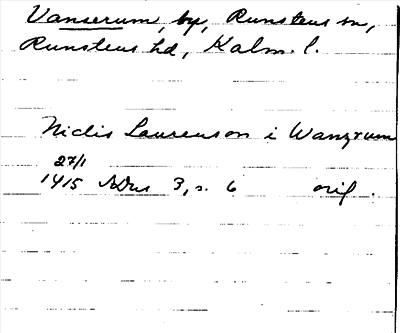 Vanserum, by, Runstens sn,
Runstens hd, Kalm. l.
Niclis Laurenson i Wanzrum
27/1
1415 SDns 3, s. 6 orig.